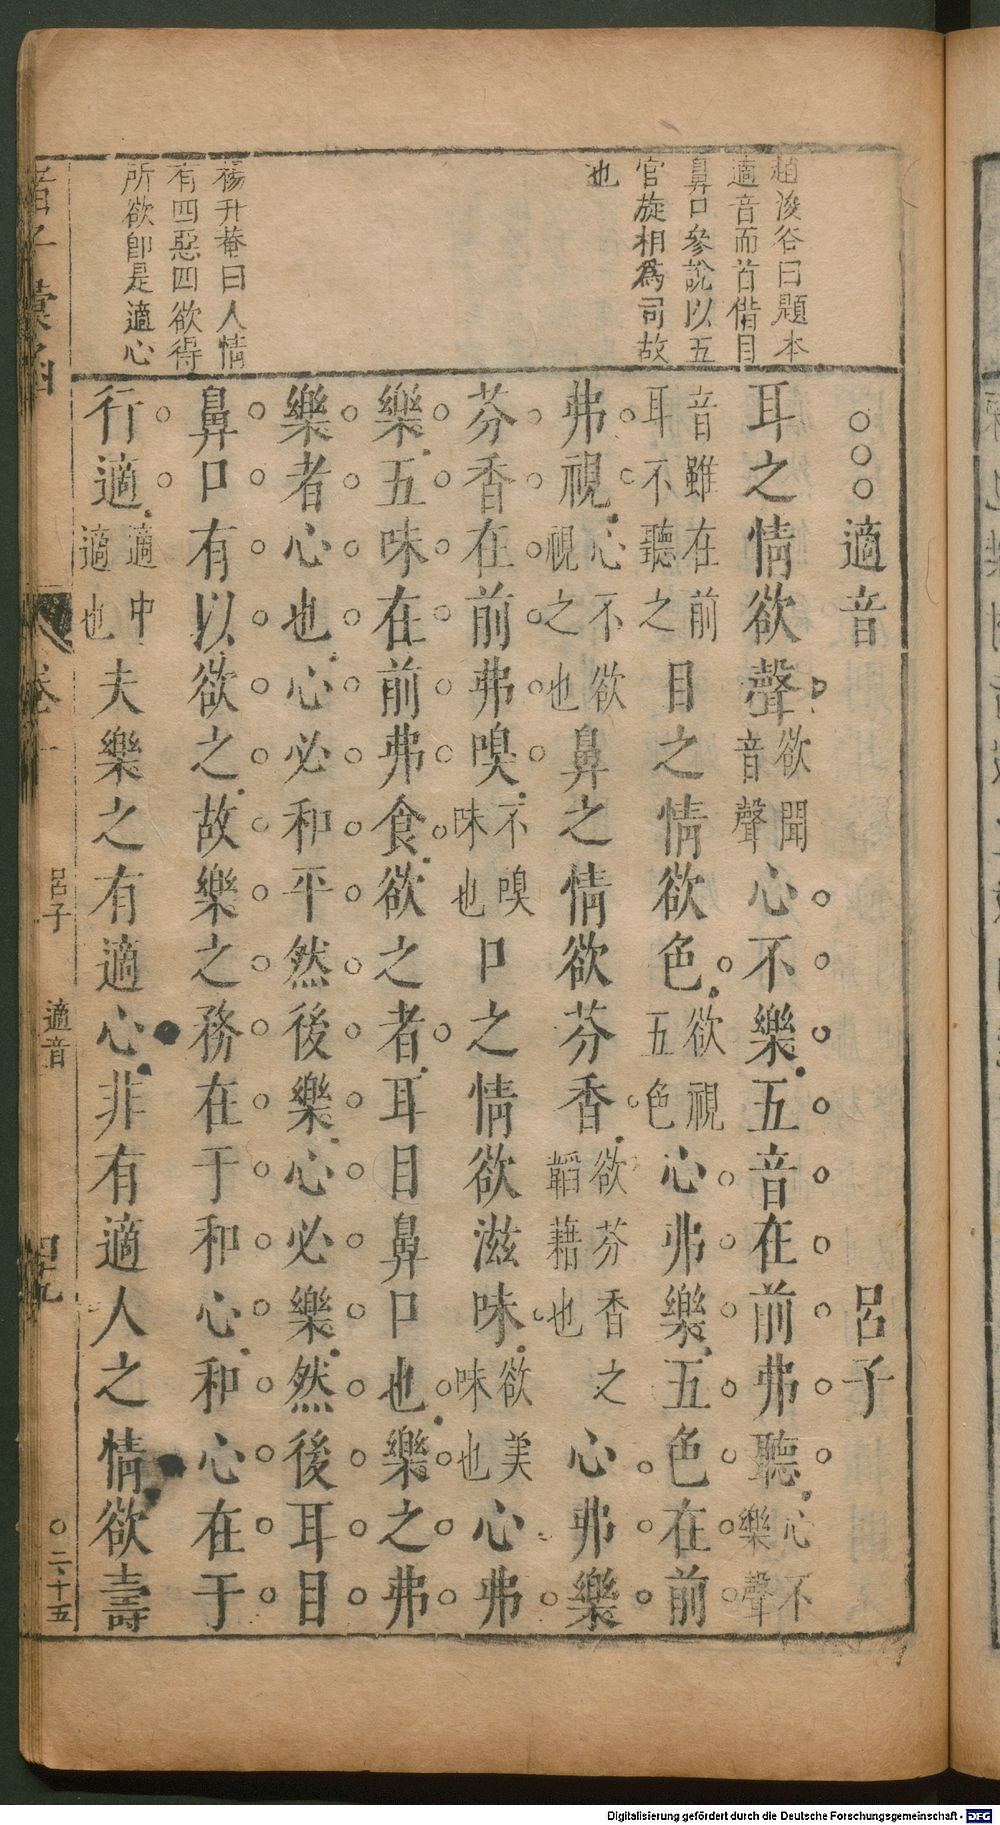 趙浚谷曰題本
適音而首偕目
鼻口參說以五
官旋相為司故
也
楊升菴曰人情
有四惡四欲得
所欲卽是適心
適音 呂子
耳之情欲聲欲聞音聲心不樂五音在前弗聽心不樂聲
音雖在前耳不聽之目之情欲色欲視五色心弗樂五色在前
弗視心不欲視之也鼻之情欲芬香欲芬香之韜藉也心弗樂
芬香在前弗嗅不嗅味也口之情欲滋味欲美味也心弗
樂五味在前弗食欲之者耳目鼻口也樂之弗
樂者心也心必和平然後樂心必樂然後耳目
鼻口有以欲之故樂之務在于和心和心在于
行適適中適也夫樂之有適心非有適人之情欲壽
卷十
呂子
適音
四九
二十五
Digitalisierung gefördert durch die Deutsche Forschungsgemeinschaft - DFG